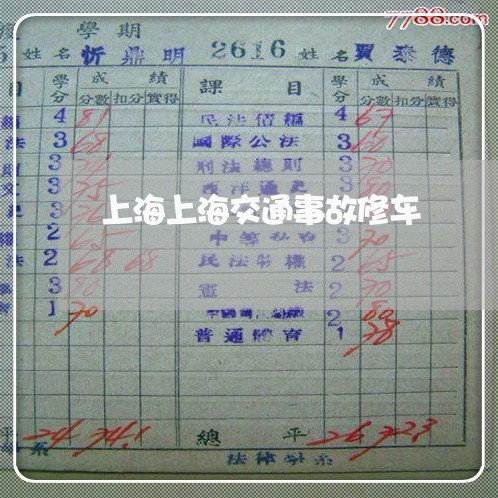 7788.com
學期
姓名 忻鼎明 2616 姓名 賈泰德
目 學分 成績 課目 學分 成績
分數 扣分 實得 分數 扣分 實得
4 81 民法債編 4 67
法 3 68 國際公法 3 60
3 刑法總則 3 70
3 75 西洋通史 3
上海上海交通事故修车
2 65 3 70
法 2 68 68 民法物權 2 65
3 憲法 2 70
1 70 2 80
普通體育 1 78
平 24 74.1 總平 26 72.3
系 法律學系